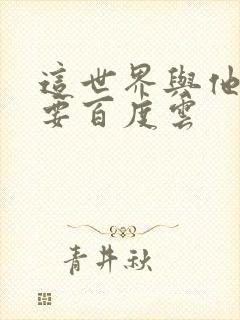 這世界與他
要百度雲
青井秋